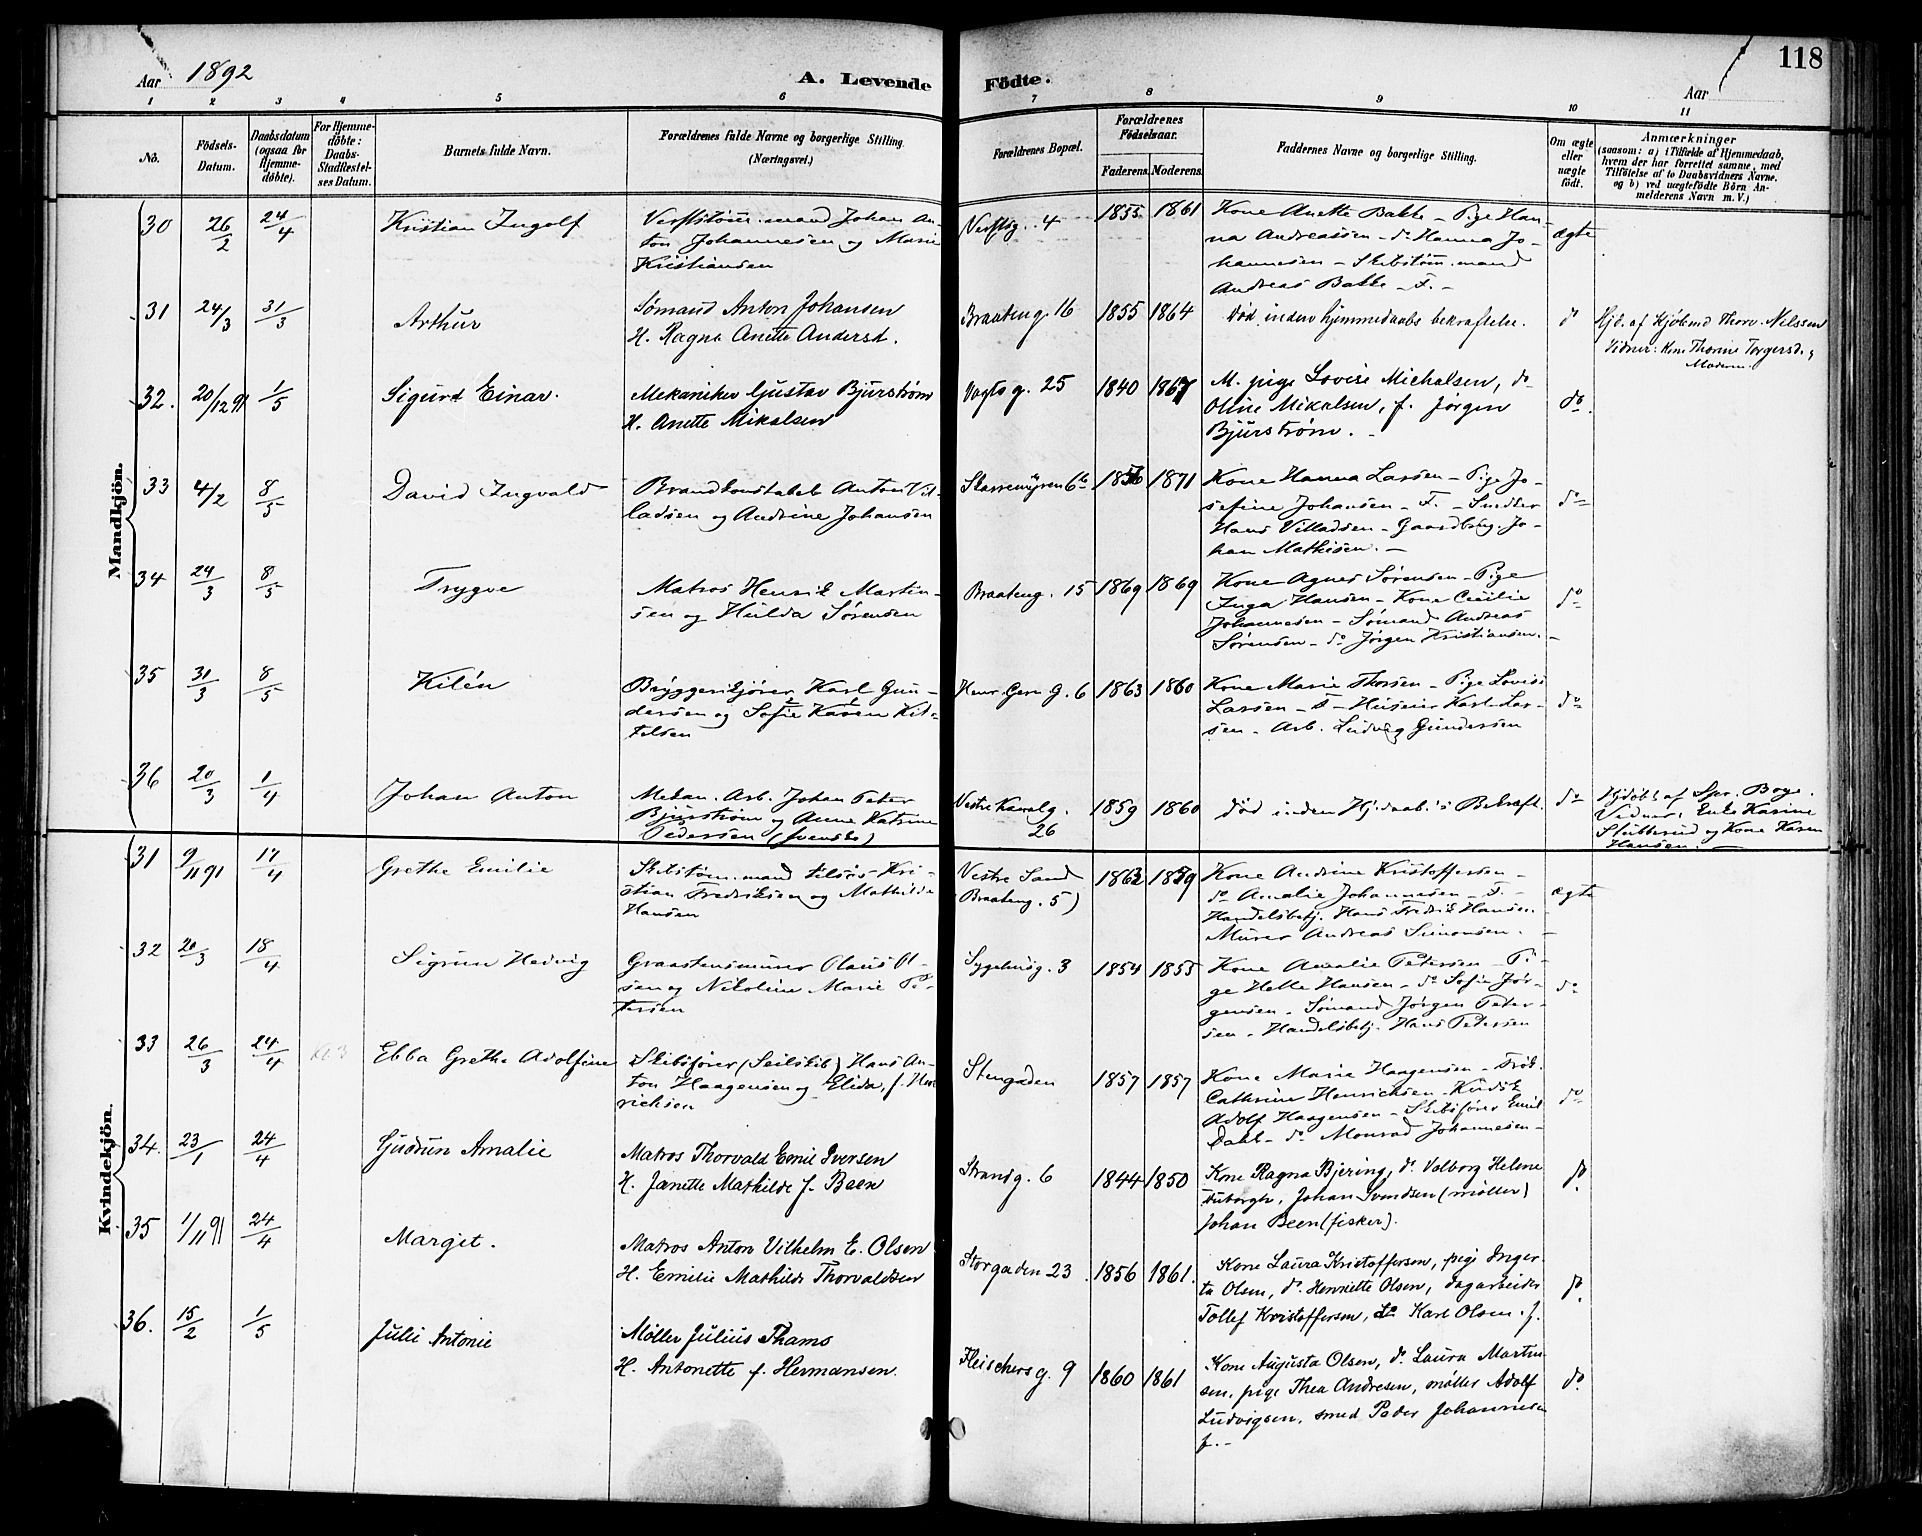 Aar 1892
A. Levende Födte.
Aar
118
1 2 3 4 5 6 7 8 9 10 11
No.
Födsels-Datum.
Daabsdatum (ogsaa for Hjemme-döbte).
For Hjemme-döbte: Daabs-Stadfæstel-ses Datum.
Barnets fulde Navn.
Forældrenes fulde Navne og borgerlige Stilling. (Næringsvei.)
Forældrenes Bopæl.
Forældrenes Födselsaar.
Faderens. Moderens.
Faddernes Navne og borgerlige Stilling.
Om ægte eller uægte født.
Anmærkninger
(saasom: a) i Tilfælde af Hjemmedaab,
hvem der har forrettet samme, med
Tilföielse af to Daabsvidners Navne.
og b) ved uægtefödte Börn An-
melderens Navn m. V.)
Mandkjön.
30 26/2 24/4 Kristian Ingolf
Verftstöm.mand Johan An-
ton Johannesen og Marie
Kristiansen
Verftsg. 4 1855 1861
Kone Anette Bakke – Pige Han-
na Andreassen – do Hanna Jo-
hannesen – Skibstöm.mand
Andreas Bakke – F. –
ægte
31 24/3 31/3 Arthur
Sømand Anton Johansen
H. Ragna Anette Andersd.
Braateng. 16 1855 1864
Død inden hjemmedaabs bekræftelse.
do
Hjd. af Kjøbmd Thorv. Nilssen
Vidner: Kone Thorine Torgersd. og
Moderen.
32. 20/12 91 1/5 Sigurd Einar.
Mekaniker Gustav Bjurstrøm
H. Anette Mikalsen
Vagtsg. 25 1840 1867
M. pige Lovise Michalsen, do
Oline Mikalsen, f. Jørgen
Bjurstrøm. –
do.
33 4/2 8/5 David Ingvald
Brandkonstabel Anton Vil-
ladsen og Andrine Johansen
Skarremyren 6b 1856 1871
Kone Hanna Larsen – Pige Jo-
sefine Johansen – F. – Snedker
Hans Villadsen – Gaardbrug. Jo-
han Mathisen. –
do
34 24/3 8/5 Trygve
Matros Henrik Martin-
sen og Hulda Sørensen
Braateng. 15 1869 1869
Kone Agnes Sørensen – Pige
Inga Hansen – Kone Cecilie
Johannesen – Sømand Andreas
Sørensen – do Jørgen Kristiansen. –
do
35 31/3 8/5 Kilén
Bryggerikjører Karl Gun-
dersen og Sofie Karen Kit-
telsen
Henr. Gern. G. 6 1863 1860
Kone Marie Thorsen – Pige Lovise
Larsen – F – Huseier Karl Lar-
sen – Arb. Ludvig Gundersen
do
36 20/3 1/4 Johan Anton
Mekan. Arb. Johan Peter
Bjurstrøm og Anne Katrine
Pedersen (svenske)
Vestre Kanalg. 26 1859 1860
Død inden Hj.daab.'s Bekræft.
do
Hjdöbt af Spr. Boye.
Vidner: Enke Karine
Stubberud og Kone Karen
Hansen. –
Kvindekjön.
31 9/11 91 17/4 Grethe Emilie
Skibstøm.mand Kri-
stian Fredriksen og Mathilde
Hansen
Vestre Sand
(Braateng. 5) 1862 1859
Kone Andrine Kristoffersen –
do Amalie Johannesen – F. –
Handelsbetj. Hans Fredrik Hansen.
Murer Andreas Simonsen. –
ægte
32 20/3 18/4 Sigrun Hedvig
Graastensmurer Olaus Ol-
sen og Nikoline Marie Pe-
tersen
Sygehusg. 3 1854 1855
Kone Amalie Petersen – Pi-
ge Helle Hansen – do Sofie Jør-
gensen – Sømand Jørgen Peter-
sen – Handelsbetj. Hans Petersen
do
33 26/3 24/4 Ebba Grethe Adolfine
Skibsfører (Seilskib) Hans An-
ton Haagensen og Elida, f. Hen-
richsen
Stengaden 1857 1857
Kone Maria Haagensen – Frøk.
Cathrine Henrichsen – Kudsk
Adolf Haagensen – Skibsfører Emil
Dahl – do Monrad Johannesen –
do
34. 23/1 24/4 Gudrun Amalie
Matros Thorvald Emil Iversen
H. Janette Mathilde f. Been
Strandg. 6 1844 1850
Kone Ragna Bjering, do Valborg Helene
Johan Svendsen (møller)
Johan Been (fisker).
do.
35 1/11 91 24/4 Margit.
Matros Anton Vilhelm E. Olsen
H. Emilie Mathilde Thorvaldsen
Storgaden 23. 1856 1861.
Kone Laura Kristoffersen, pige Inger-
ta Olsen, do Henriette Olsen, dagarbeider
Tollef Kristoffersen, do Karl Olsen. f.
do.
36. 15/2 1/5 Julie Antonie
Møller Julius Thams
H. Antonette f. Hermansen.
Fleischersg. 9 1860 1861
Kone Augusta Olsen, do Laura Martin-
sen, pige Thea Andresen, møller Adolf
Ludvigsen, smed Peder Johannesen
f. –
do.